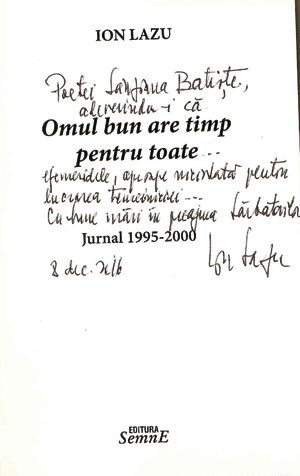 ION LAZU
Poetei Sanziana Batiște,
adeverindu-i că
Omul bun are timp
pentru toate...
efemeridele, aproape niciodată pentru
lucrarea temeiniciei...
Cu bune urări în preajma Sărbătorilor
Jurnal 1995-2000
8 dec. 2016
Ion Lazu
EDITURA
SemnE